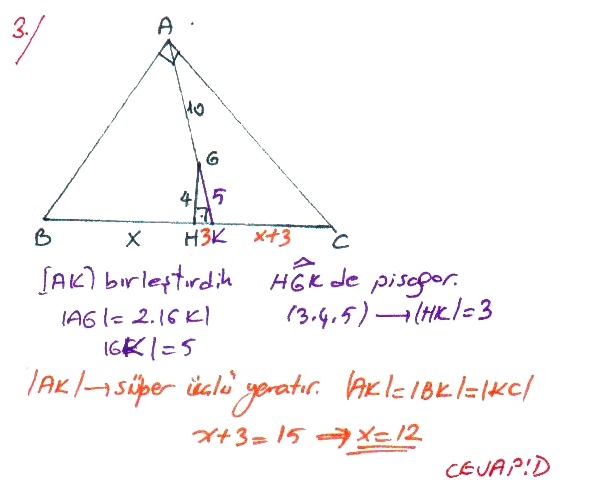 3./
A
10
G
4 5
B x H 3 K x+3 C
[AK) birleştirdik HGK de pisagor.
|AG| = 2.|GK| (3.4.5) → |HK| = 3
|GK| = 5
|AK| → süper üçlü yaratır. |AK| = |BK| = |KC|
x+3 = 15 ⇒ x = 12
CEVAP:D